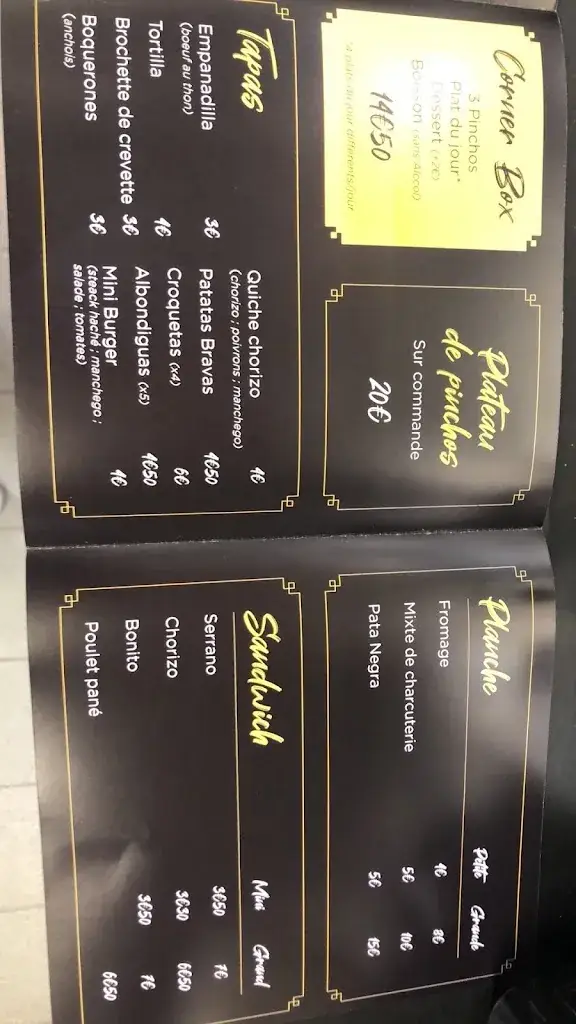 Corner Box
3 Pinchos
Plat du jour*
Dessert (+2€)
Boisson (sans Alcool)
14€50
*4 plats du jour différents/jour
Plateau
de pinchos
Sur commande
20€
Tapas
Empanadilla 3€
(boeuf au thon)
Tortilla 4€
Brochette de crevette 3€
Boquerones 3€
(anchois)
Quiche chorizo 4€
(chorizo ; poivrons ; manchego)
Patatas Bravas 4€50
Croquetas (x4) 6€
Albondiguas (x5) 4€50
Mini Burger 4€
(steack haché ; manchego ;
salade ; tomates)
Planche Petite Grande
Fromage 4€ 8€
Mixte de charcuterie 5€ 10€
Pata Negra 5€ 15€
Sandwich Mini Grand
Serrano 3€50 7€
Chorizo 3€30 6€50
Bonito 3€50 7€
Poulet pané 6€50